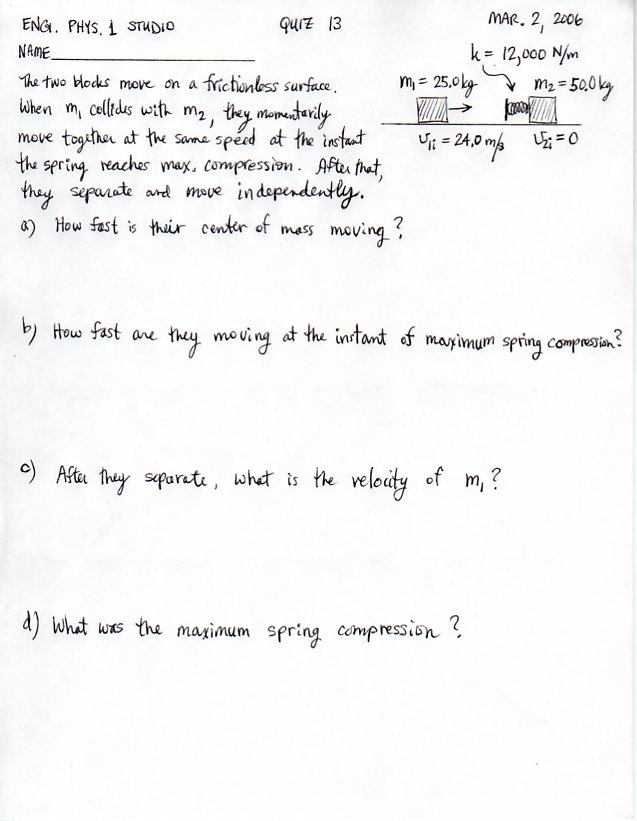 ENG. PHYS. 1 STUDIO QUIZ 13 MAR. 2, 2006
NAME
k = 12,000 N/m
m₁ = 25.0 kg m₂ = 50.0 kg
v₁ᵢ = 24.0 m/s v₂ᵢ = 0
The two blocks move on a frictionless surface.
When m₁ collides with m₂, they momentarily
move together at the same speed at the instant
the spring reaches max. compression. After that,
they separate and move independently.
a) How fast is their center of mass moving?
b) How fast are they moving at the instant of maximum spring compression?
c) After they separate, what is the velocity of m₁?
d) What was the maximum spring compression?